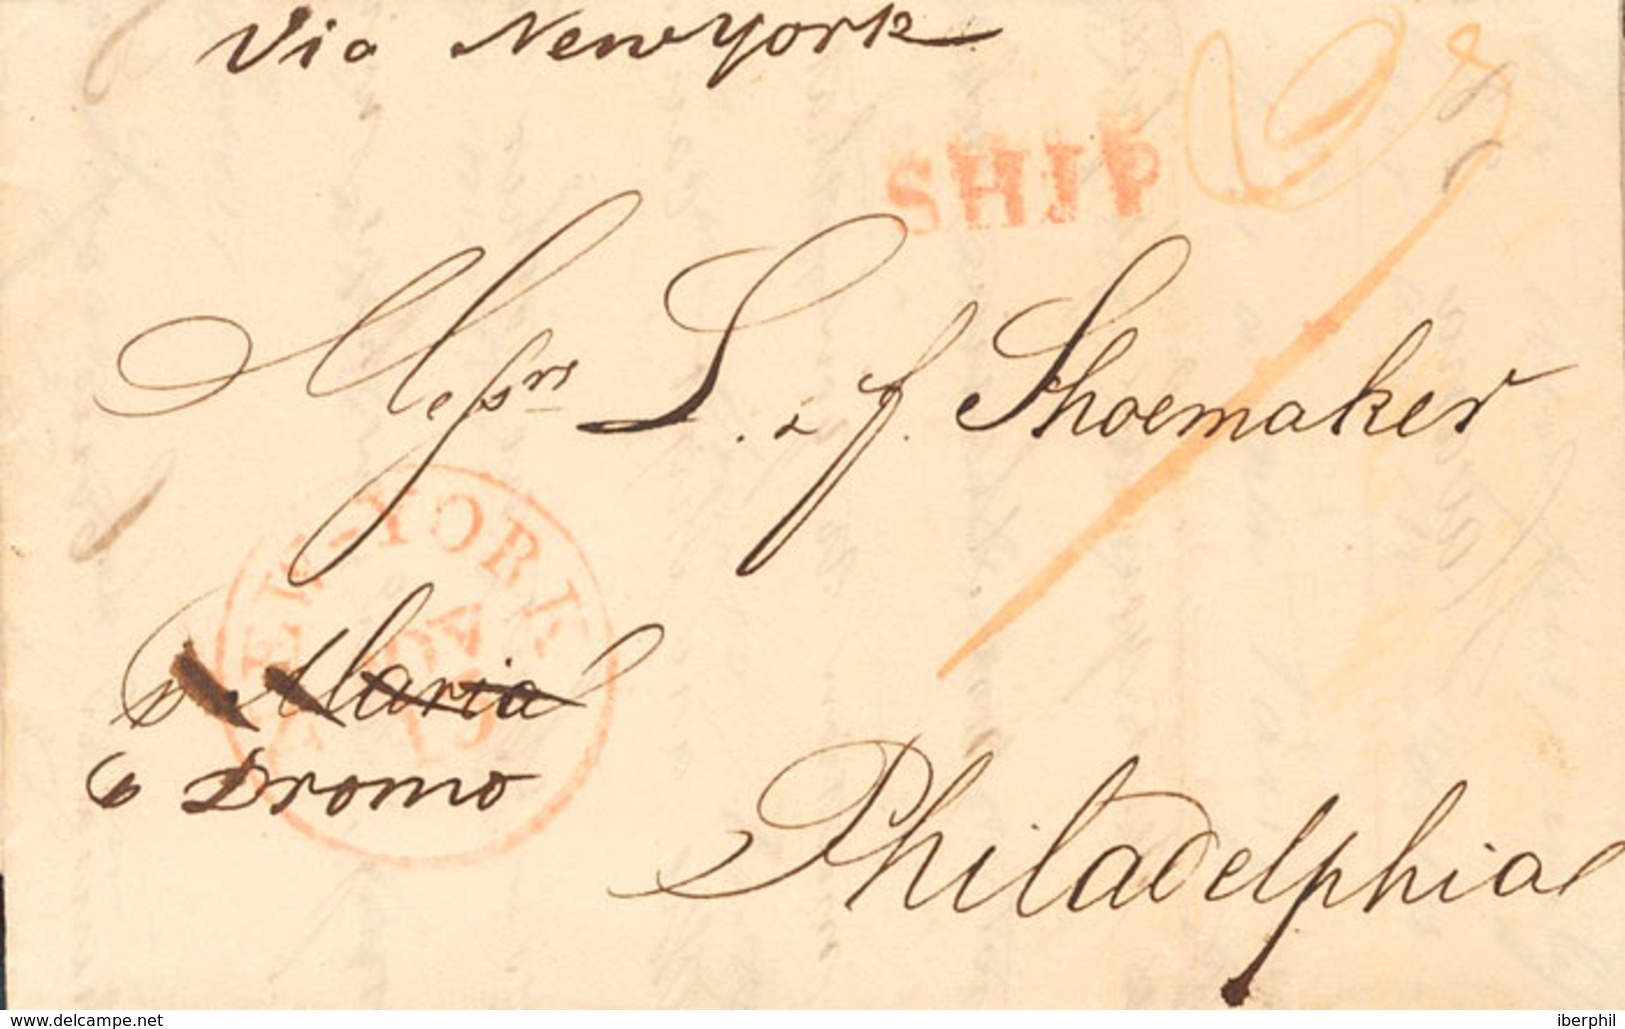 Via New York
SHIP
Messrs L. & J. Shoemaker
NEW-YORK
NOV
19
p. Maria
p Dromo
Philadelphia
www.delcampe.net
iberphil